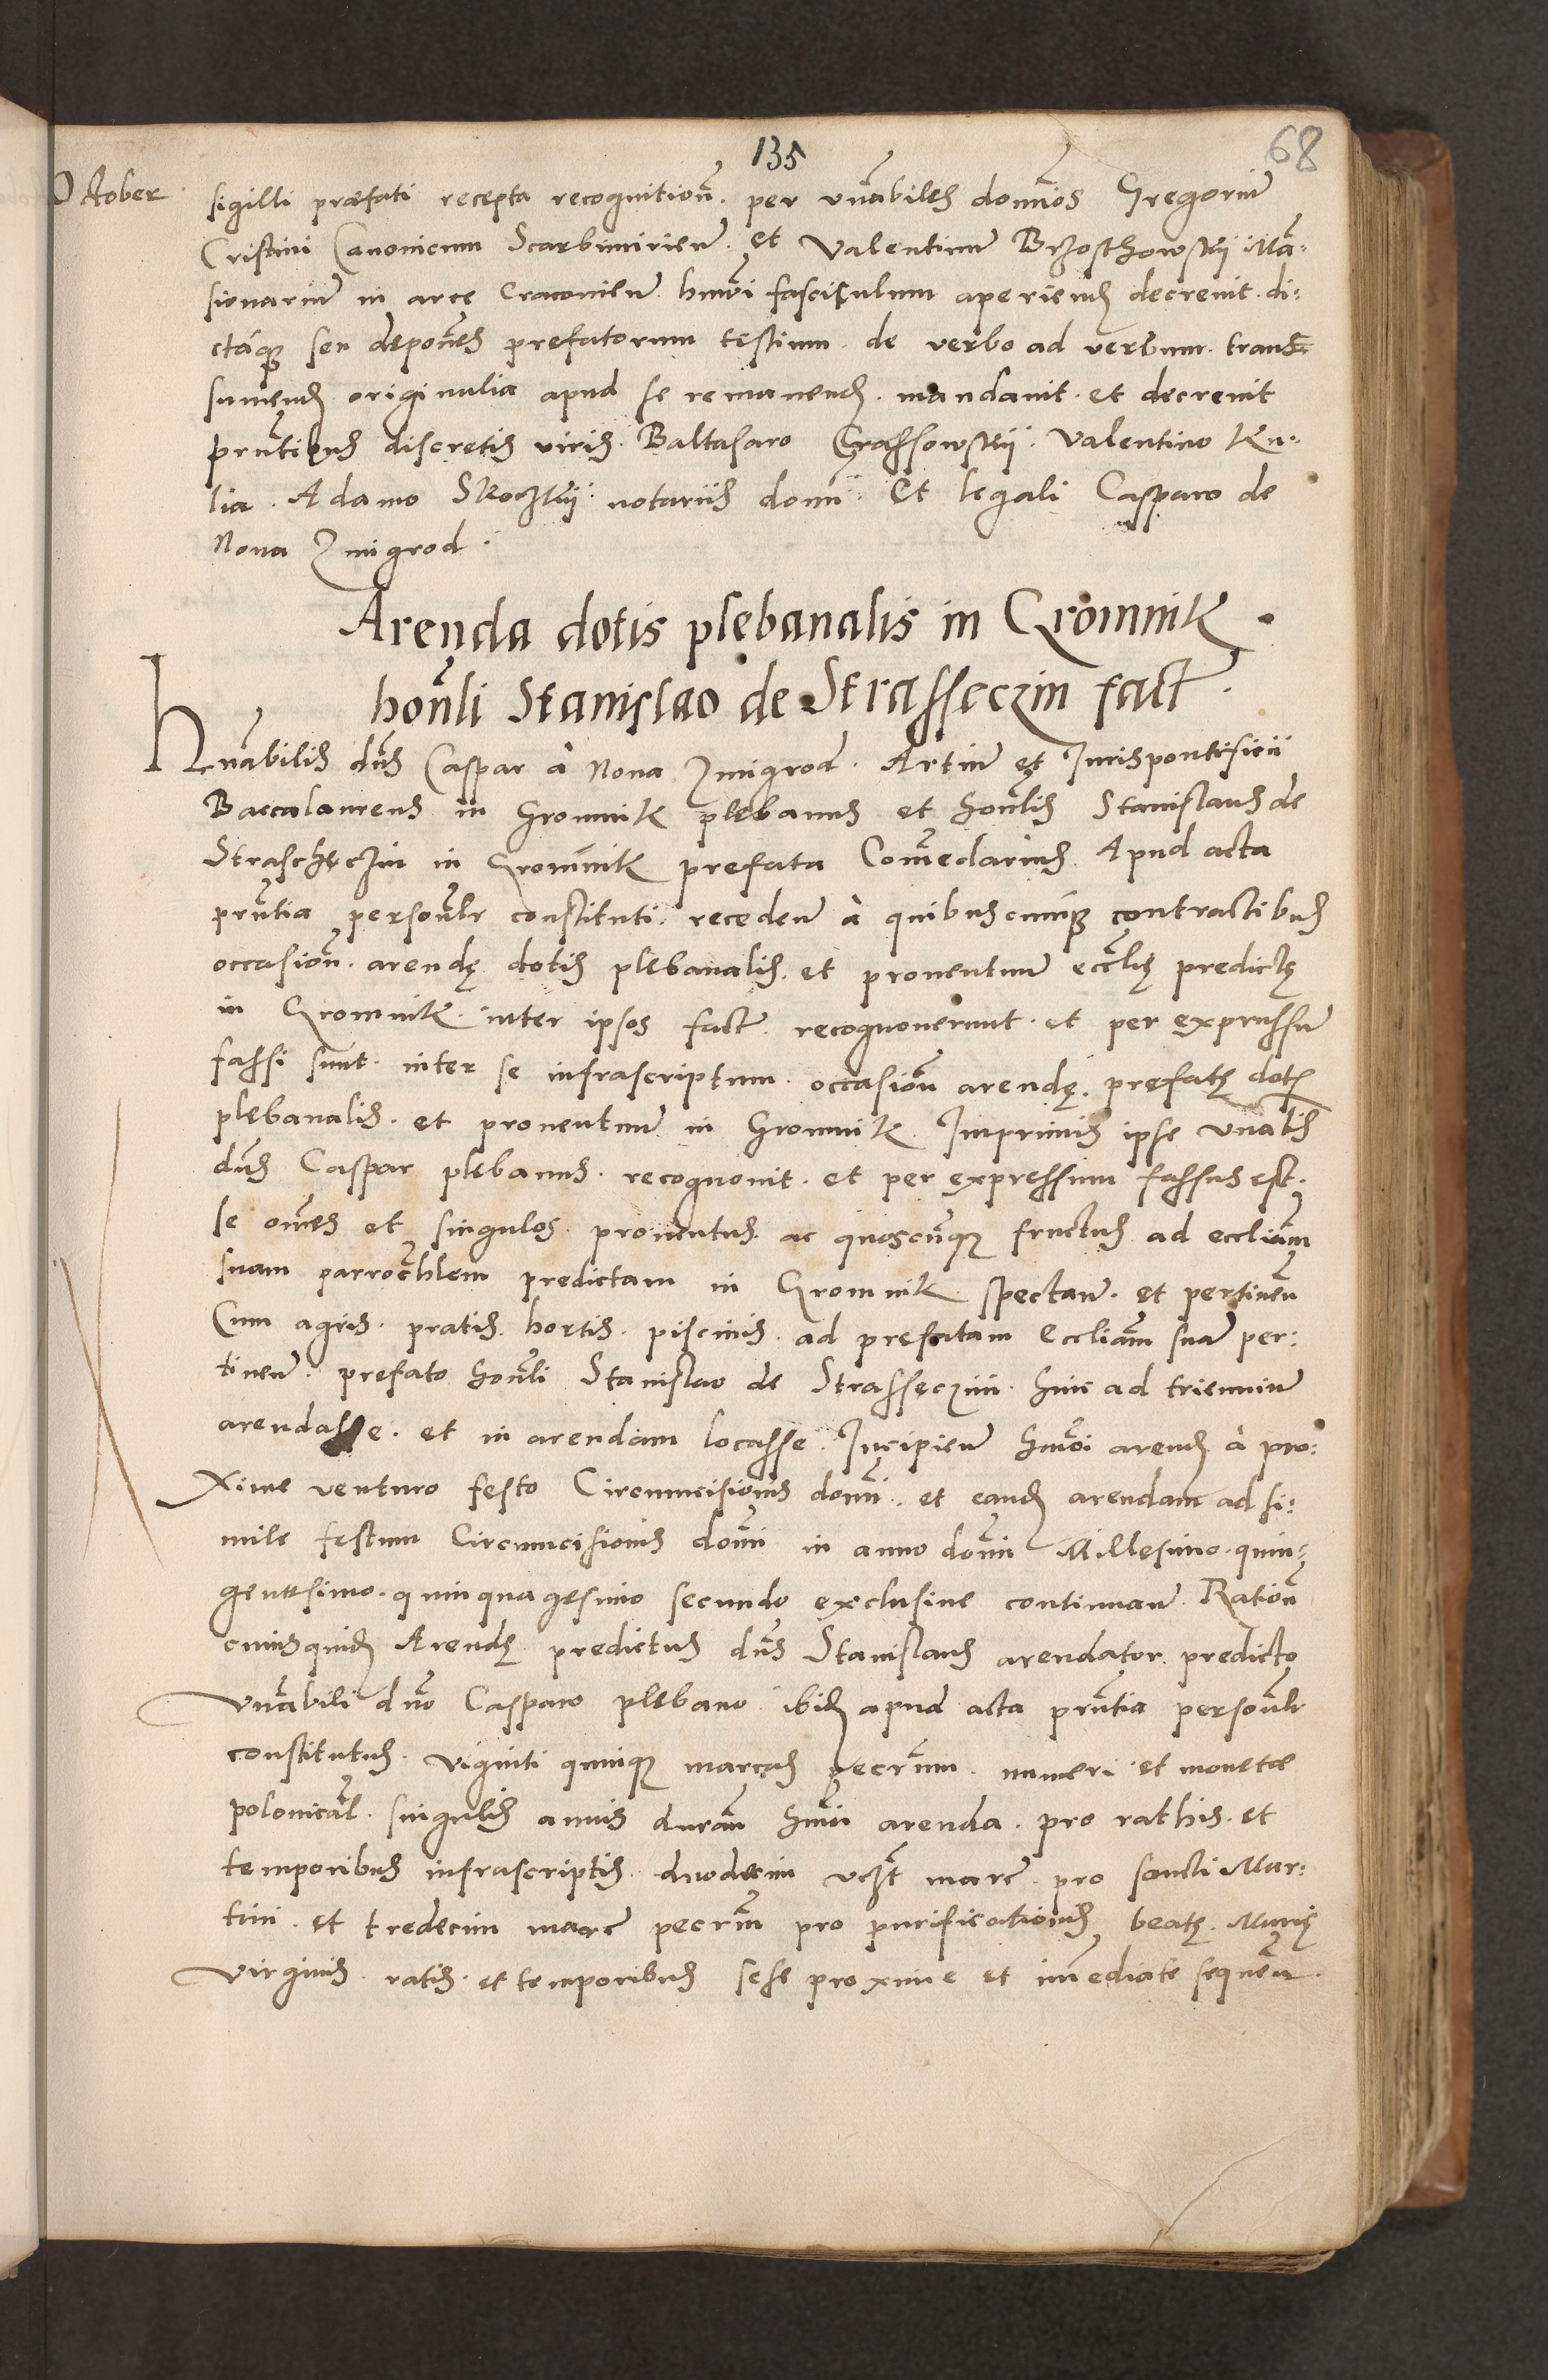 135
68
October
sigilli præfati recepta recognitioñ. per vñabiles domĩos Gregoriũ
Cristini Canonicum Scarbimirieñ. et Valentinũ Brzosthowskÿ Mã-
sionariũ in arce Cracovieñ. hmõi fascisculum aperiend̃ decrevit. di-
ctáqꝫ seu depoñes prefatorum testium. de verbo ad verbum. trans-
sumend̃ originalia apud se remanend̃. mandavit. et decrevit
prñtibus discretis viris. Baltasaro Grassowskÿ. Valentino Ku-
lia. Adamo Skoczkÿ. notariis domi. Et legali Casparo de
Nova Zmigrod.
Arenda dotis plebanalis in Gromnik.
hoñli Stanislao de Strassęczin fact̃.
Vñabilis dñs Caspar à Nova Zmigrod. Artiũ et Jurispontificii
Baccalaureus in Gromnik plebanus et hoñlis Stanislaus de
Straschęczin in Gromnik prefata Com̃edarius. Apud acta
prñtia persoñlr constituti. recedeñ à quibuscunqꝫ contractibus
occasioñ. arendę dotis plebanalis. et proventuũ ecclię predictę
in Gromnik. inter ipsos fact̃. recognoverunt. et per expressũ
fassi sunt. inter se infrascriptum. occasioñ arendę. prefatę dotis
plebanalis. et proventuũ in Gromnik. Imprimis ipse vñablis
dñs Caspar plebanus. recognovit. et per expressum fassus est.
se om̃es et singulos. proventus. ac quoscũque fructus ad eccliam
suam parrochlem predictam in Gromnik spectañ. et pertineñ
Cum agris. pratis. hortis. piscinis. ad prefatam Eccliam suã per-
tineñ. prefato hoñli Stanislao de Strassęczin. hinc ad trienniũ
arendasse. et in arendam locasse. Incipieñ hmõi arend̃ à pro-
xime venturo festo Circumcisionis domĩ. et eand̃ arendam ad si-
mile festum Circumcisionis domĩ in anno domĩ Millesimo. quin-
gentesimo. quinquagesimo secundo exclusive continuañ. Ratioñ
cuiusquid̃ Arendę predictus dñs Stanislaus arendator. predicto
Vñabili dño Casparo plebano ibid̃ apud acta prñtia persoñlr
constitutus. viginti quinqꝫ marcas pecũm. numeri et monetæ
polonicãl. singulis annis durañ hmõi arenda. pro rathis. et
temporibus infrascriptis. duodecim vczt̃ marc̃. pro sancti Mar-
tini. et tredecim marc̃ pecũm pro purificationis beatę. Marię
virginis. ratis. et temporibus sese proxime et im̃ediate sequeñ.